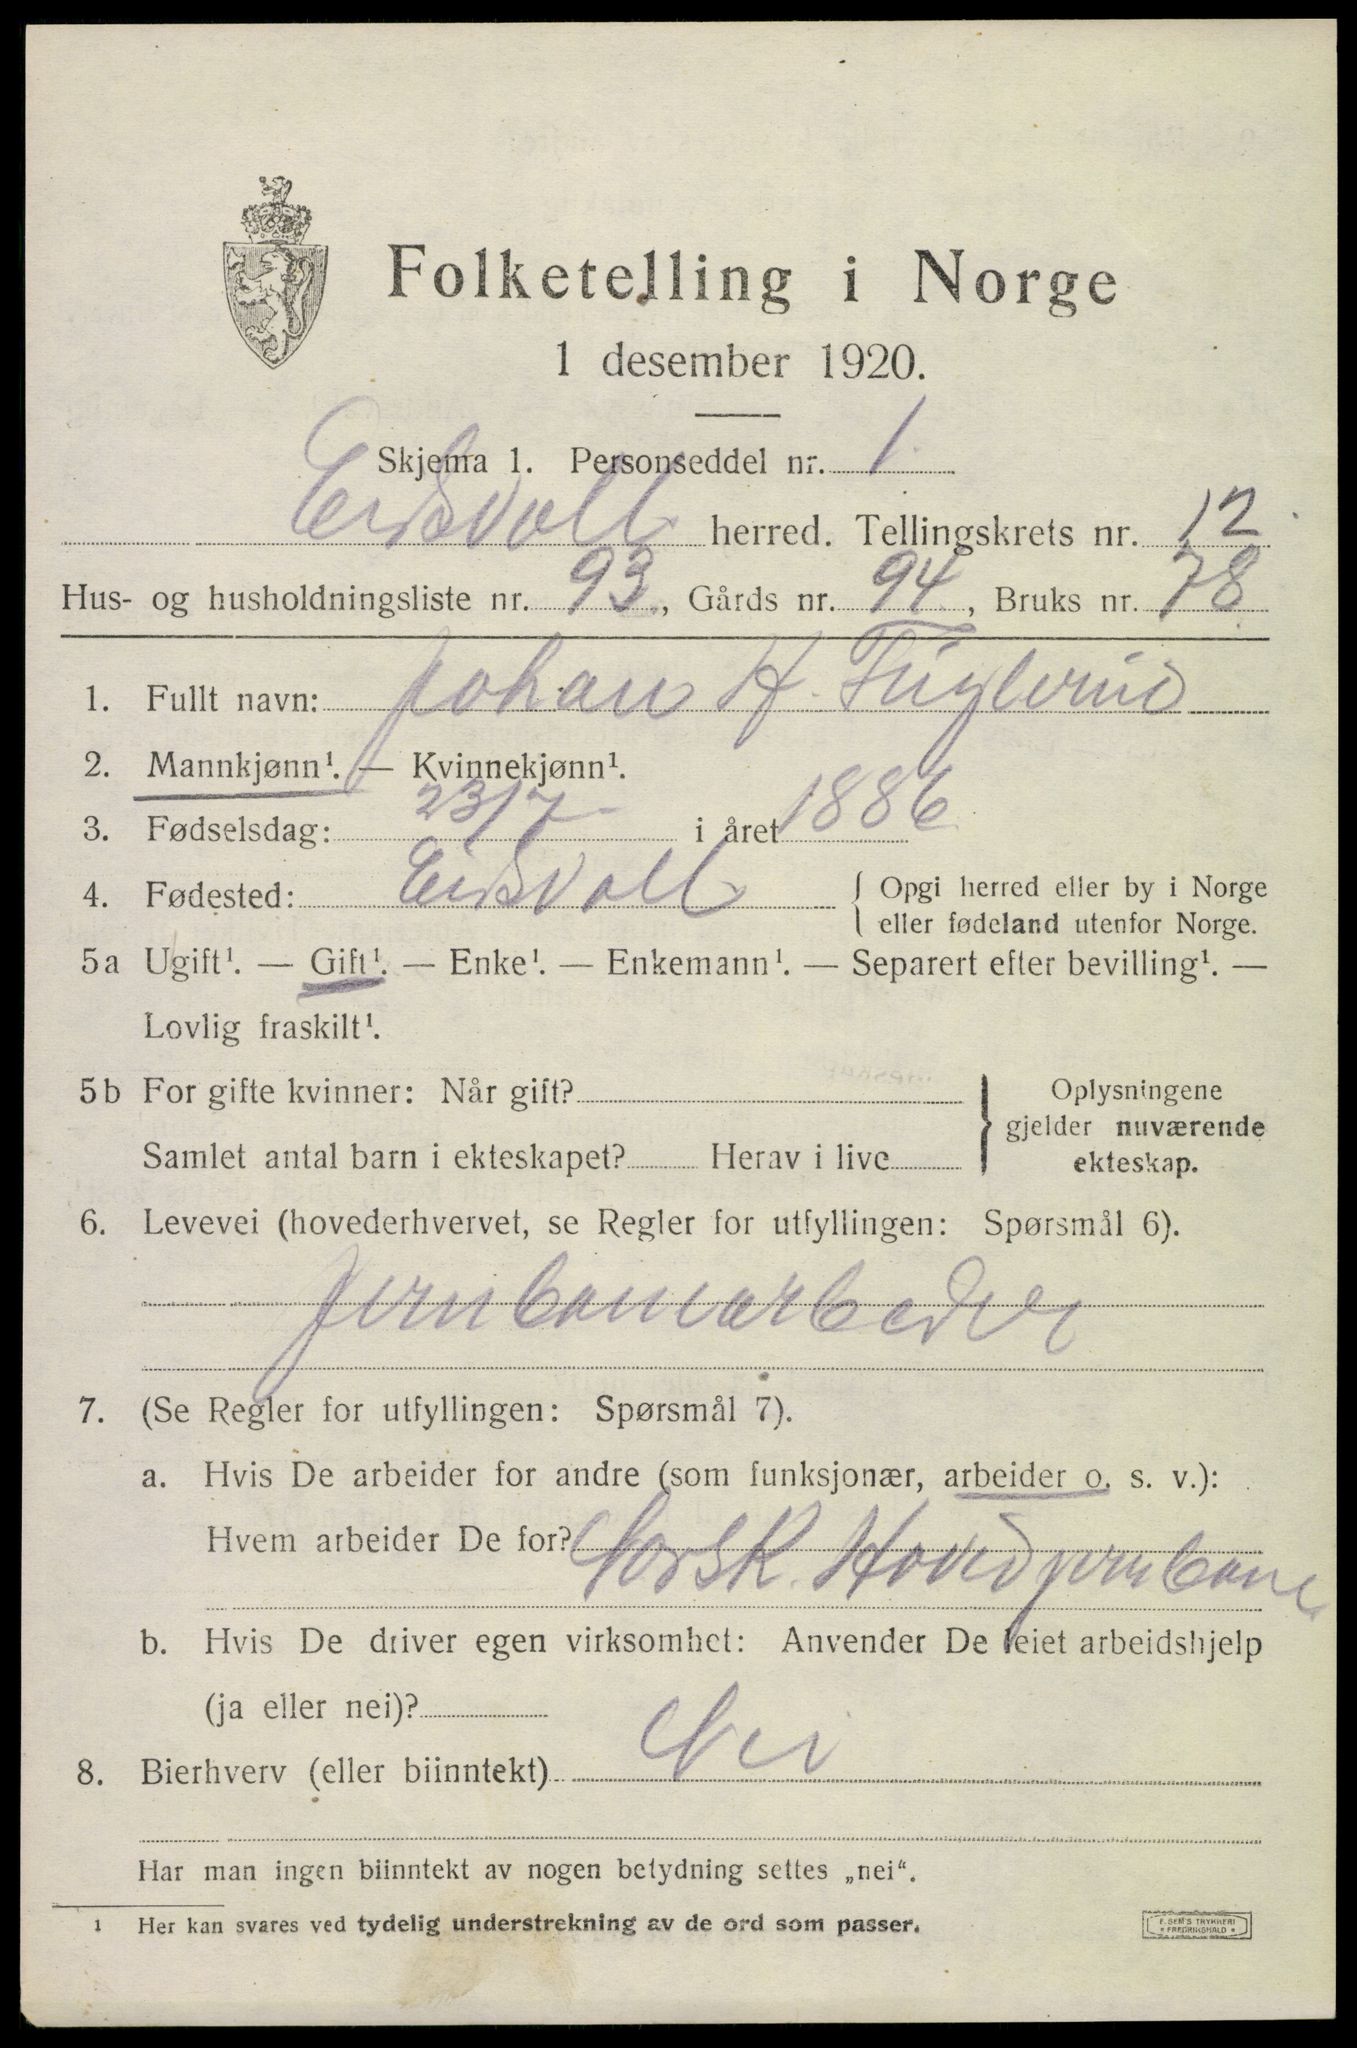 Folketelling i Norge
1 desember 1920.
Skjema 1. Personseddel nr. 1.
Eidsvoll herred. Tellingskrets nr. 12.
Hus- og husholdningsliste nr. 93, Gårds nr. 94, Bruks nr. 78
1. Fullt navn: Johan H. Fuglerud
2. Mannkjønn¹. — Kvinnekjønn¹.
3. Fødselsdag: 23/7 i året 1886
4. Fødested: Eidsvoll { Opgi herred eller by i Norge
eller fødeland utenfor Norge.
5a Ugift¹. — Gift¹. — Enke¹. — Enkemann¹. — Separert efter bevilling¹. —
Lovlig fraskilt¹.
5b For gifte kvinner: Når gift? } Oplysningene
gjelder nuværende
Samlet antal barn i ekteskapet? Herav i live
ekteskap.
6. Levevei (hovederhvervet, se Regler for utfyllingen: Spørsmål 6).
Jernbanearbeder
7. (Se Regler for utfyllingen: Spørsmål 7).
a. Hvis De arbeider for andre (som funksjonær, arbeider o. s. v.):
Hvem arbeider De for? Norsk. Hovedjernbane
b. Hvis De driver egen virksomhet: Anvender De leiet arbeidshjelp
(ja eller nei)?
8. Bierhverv (eller biinntekt) Nei
Har man ingen biinntekt av nogen betydning settes „nei“.
¹ Her kan svares ved tydelig understrekning av de ord som passer.
E. SEM'S TRYKKERI
FREDRIKSHALD